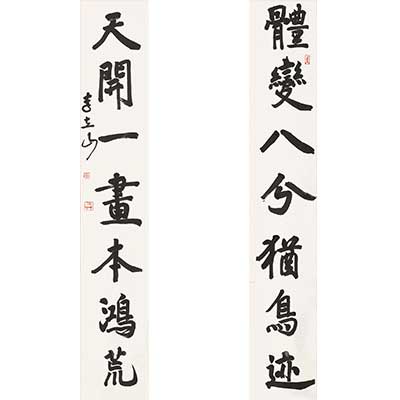 體變八分猶鳥迹
天開一畫本鴻荒
李立山